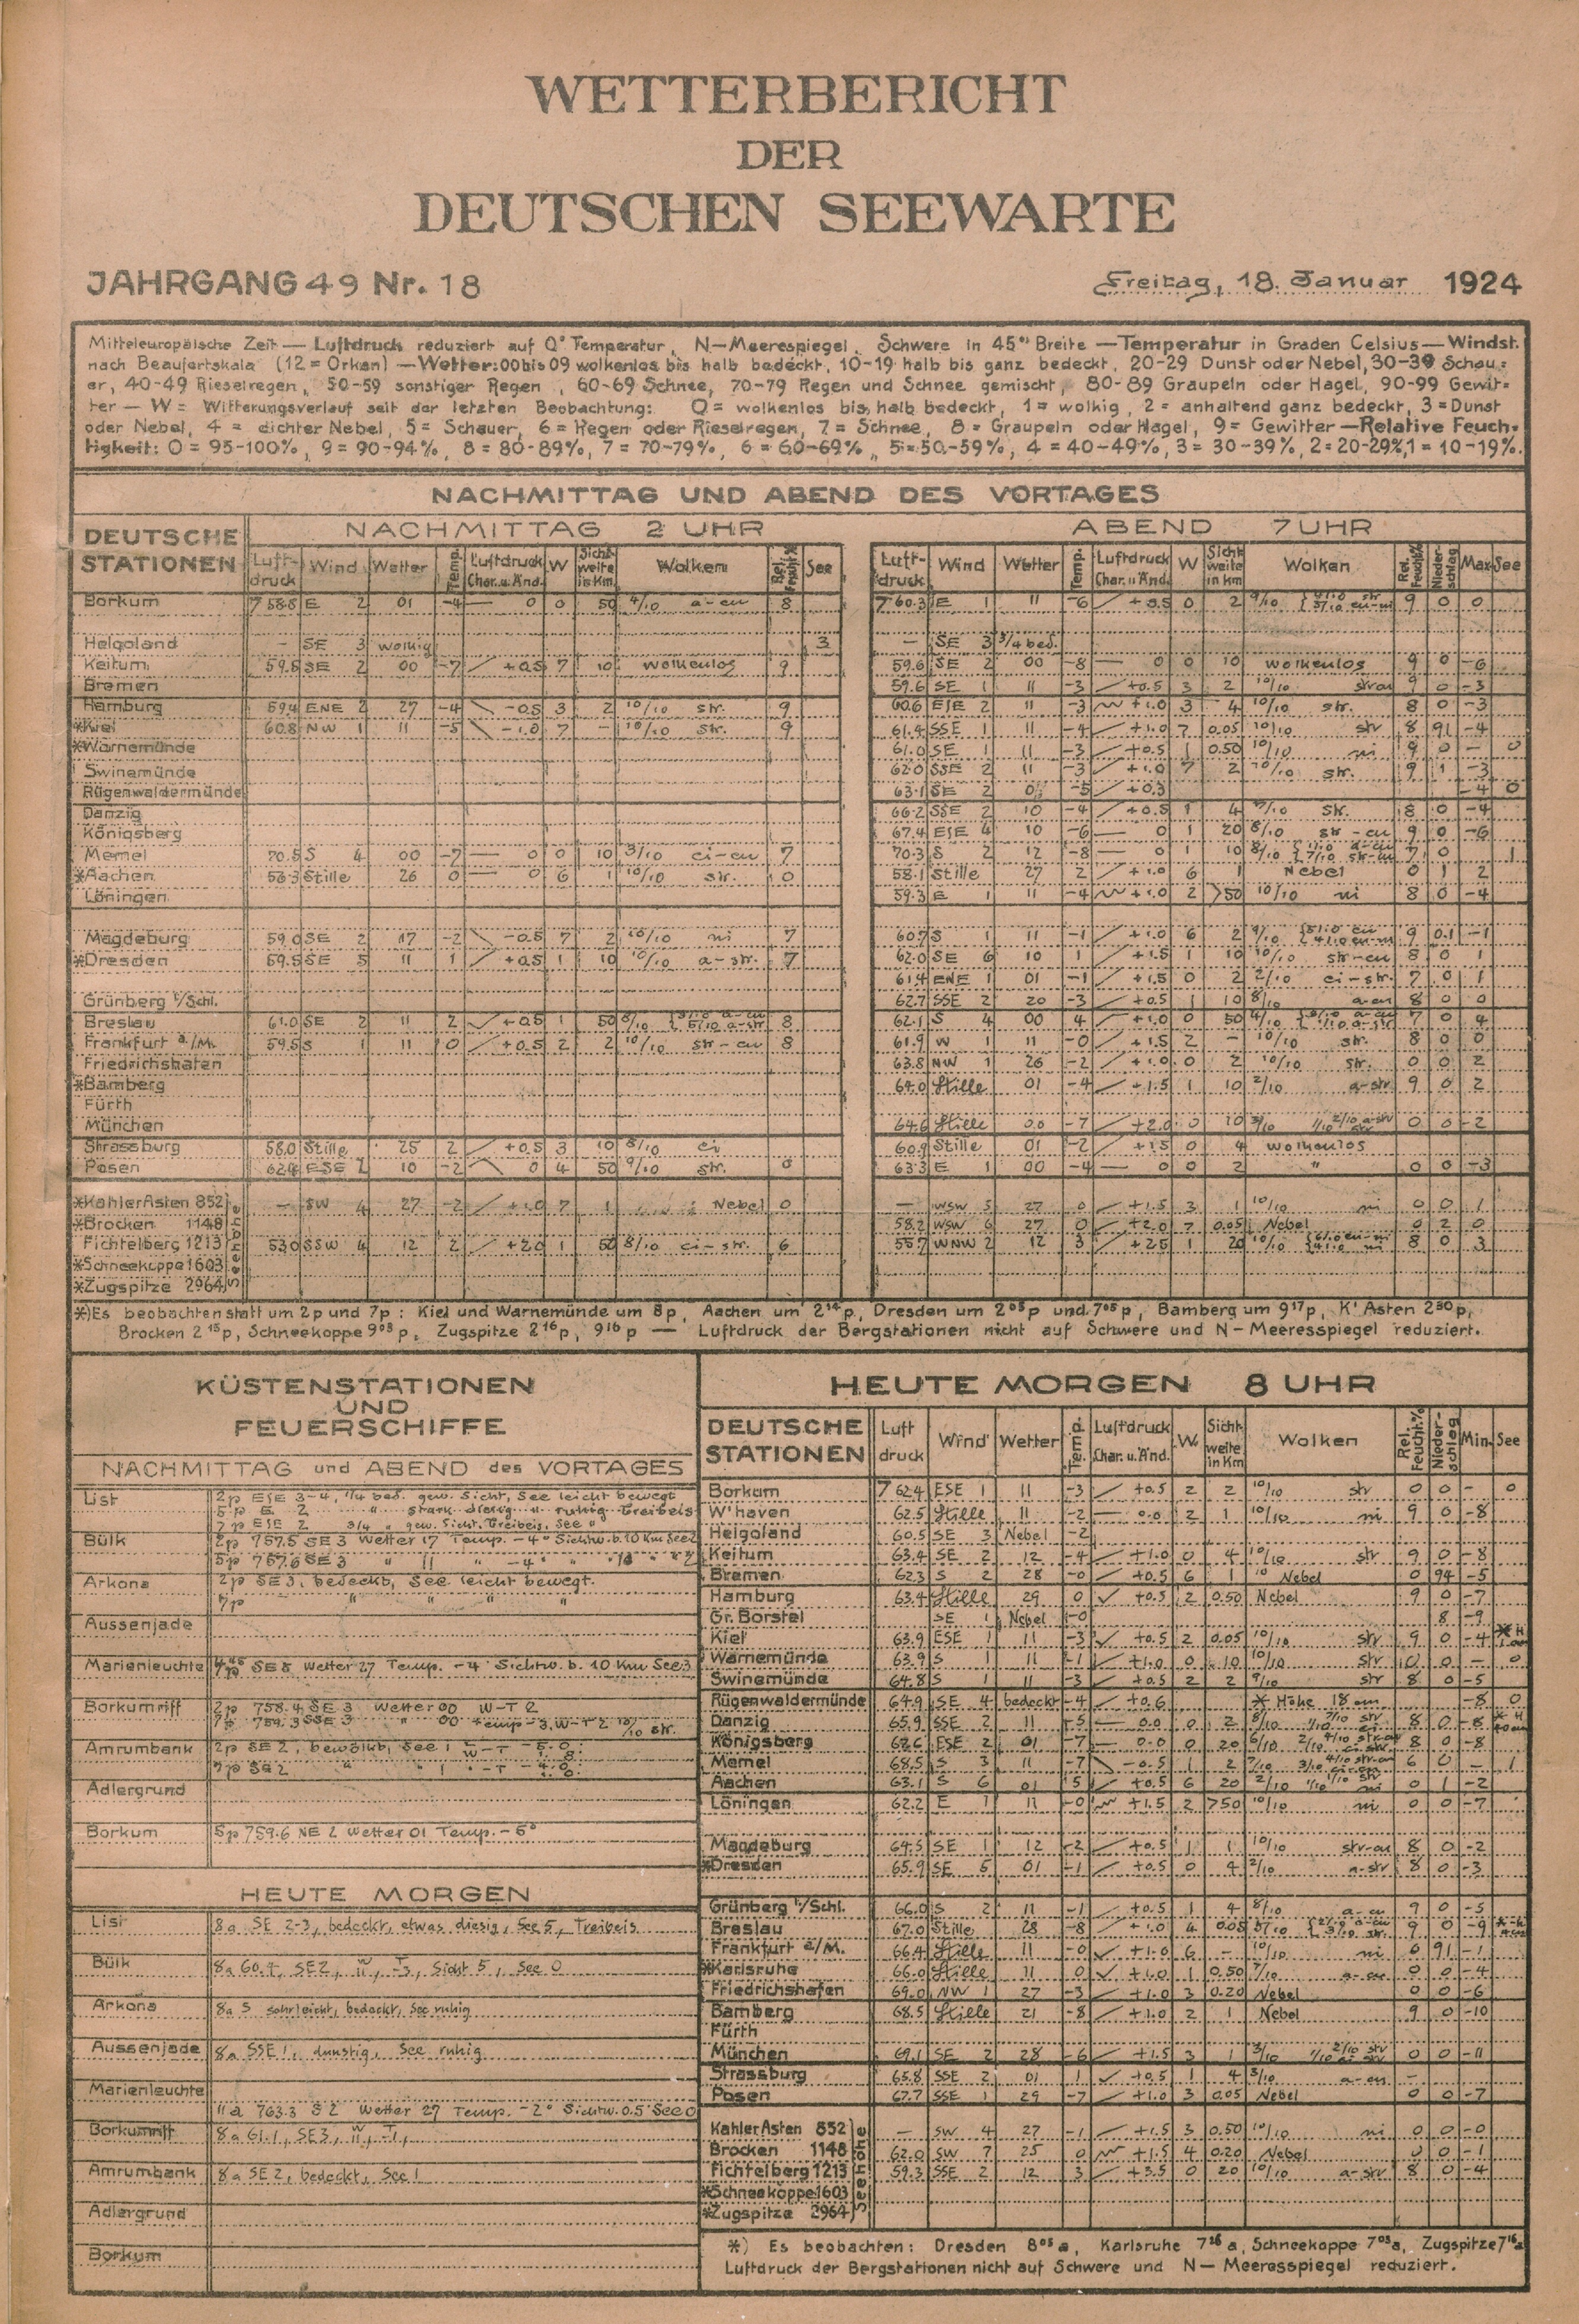 WETTERBERICHT
DER
DEUTSCHEN SEEWARTE
JAHRGANG 49 Nr. 18
Freitag, 18. Januar 1924
Mitteleuropäische Zeit — Luftdruck reduziert auf 0° Temperatur, N-Meerespiegel, Schwere in 45° Breite — Temperatur in Graden Celsius — Windst.
nach Beaufortskala (12 = Orkan) — Wetter: 00 bis 09 wolkenlos bis halb bedeckt, 10-19 halb bis ganz bedeckt, 20-29 Dunst oder Nebel, 30-39 Schau=
er, 40-49 Rieselregen, 50-59 sonstiger Regen, 60-69 Schnee, 70-79 Regen und Schnee gemischt, 80-89 Graupeln oder Hagel, 90-99 Gewit=
ter — W = Witterungsverlauf seit der letzten Beobachtung: 0 = wolkenlos bis halb bedeckt, 1 = wolkig, 2 = anhaltend ganz bedeckt, 3 = Dunst
oder Nebel, 4 = dichter Nebel, 5 = Schauer, 6 = Regen oder Rieselregen, 7 = Schnee, 8 = Graupeln oder Hagel, 9 = Gewitter — Relative Feuch=
tigkeit: 0 = 95-100%, 9 = 90-94%, 8 = 80-89%, 7 = 70-79%, 6 = 60-69%, 5 = 50-59%, 4 = 40-49%, 3 = 30-39%, 2 = 20-29%, 1 = 10-19%.
NACHMITTAG UND ABEND DES VORTAGES
DEUTSCHE STATIONEN
NACHMITTAG 2 UHR
ABEND 7 UHR
Luftdruck Wind Wetter Temp. Luftdruck Char. u. Änd. W Sichtweite in Km. Wolken Rel. Feucht.% See
Luftdruck Wind Wetter Temp. Luftdruck Char. u. Änd. W Sichtweite in Km Wolken Rel. Feucht.% Niederschlag Max See
Borkum 758.8 E 2 01 -4 — 0 0 50 4/10 a-cu 8 760.3 E 1 11 -6 +0.5 0 2 9/10 9 0 0
Helgoland - SE 3 wolkig 3 — SE 3 3/4 bed.
Keitum 59.5 SE 2 00 -7 +0.5 7 10 wolkenlos 9 59.6 SE 2 00 -8 — 0 0 10 wolkenlos 9 0 -6
Bremen 59.6 SE 1 11 -3 +0.5 3 2 10/10 9 0 -3
Hamburg 59.4 ENE 2 27 -4 -0.5 3 2 10/10 str. 9 60.6 ESE 2 11 -3 +1.0 3 4 10/10 str. 8 0 -3
*Kiel 60.8 NW 1 11 -5 -1.0 7 - 10/10 str. 9 61.4 SSE 1 11 -4 +1.0 7 0.05 10/10 str 8 91 -4
*Warnemünde 61.0 SE 1 11 -3 +0.5 1 0.50 10/10 ni 9 0 - 0
Swinemünde 62.0 SSE 2 11 -3 +1.0 7 2 10/10 str. 9 1 -3
Rügenwaldermünde 63.1 SE 2 -5 +0.3 -4 0
Danzig 66.2 SSE 2 10 -4 +0.5 1 4 str. 8 0 -4
Königsberg 67.4 ESE 4 10 -6 — 0 1 20 8/10 str-cu 9 0 -6
Memel 70.5 S 4 00 -7 — 0 0 10 3/10 ci-cu 7 70.3 S 2 12 -8 — 0 1 10 8/10 1/10 a-cu 7/10 str-cu 7 0 1
*Aachen Stille 26 0 — 0 6 1 10/10 str. 0 58.1 Stille 27 2 +1.0 6 1 Nebel 0 1 2
Löningen 59.3 E 1 11 -4 +1.0 2 >50 10/10 ni 8 0 -4
Magdeburg 59.0 SE 2 17 -2 -0.5 7 2 10/10 ni 7 60.7 S 1 11 -1 +1.0 6 2 9/10 9 0.1 -1
*Dresden 59.5 SE 5 11 1 +0.5 1 10 10/10 a-str. 7 62.0 SE 6 10 1 +1.5 1 10 10/10 str-cu 8 0 1
61.4 ENE 1 01 -1 +1.5 0 2 2/10 ci-str. 7 0 1
Grünberg i/Schl. 62.7 SSE 2 20 -3 +0.5 1 10 8/10 a-cu 8 0 0
Breslau 61.0 SE 2 11 2 +0.5 1 50 8/10 3/10 a-cu 5/10 a-str 8 62.1 S 4 00 4 +1.0 0 50 4/10 7 0 4
Frankfurt a./M. 59.5 S 1 11 0 +0.5 2 2 10/10 str-cu 8 61.9 W 1 11 -0 +1.5 2 - 10/10 str. 8 0 0
Friedrichshafen 63.8 NW 1 26 -2 +1.0 0 2 10/10 str. 0 0 2
*Bamberg 64.0 Stille 01 -4 +1.5 1 10 2/10 a-str 9 0 2
Fürth
München 64.6 Stille 00 -7 +2.0 0 10 3/10 0 0 -2
Strassburg 58.0 Stille 25 2 +0.5 3 10 8/10 ci 60.9 Stille 01 -2 +1.5 0 4 wolkenlos
Posen 62.4 ESE 2 10 -2 0 4 50 9/10 str. 0 63.3 E 1 00 -4 — 0 0 2 " 0 0 -3
Seehöhe
*Kahler Asten 852 — SW 4 27 -2 +1.0 7 1 Nebel 0 — WSW 5 27 0 +1.5 3 1 10/10 ni 0 0 1
*Brocken 1148 58.2 WSW 6 27 0 +2.0 7 0.05 Nebel 0 2 0
Fichtelberg 1213 53.0 SSW 4 12 2 +2.0 1 50 8/10 ci-str. 6 55.7 WNW 2 12 3 +2.5 1 20 10/10 8 0 3
*Schneekoppe 1603
*Zugspitze 2964
*) Es beobachten statt um 2p und 7p : Kiel und Warnemünde um 8p, Aachen um 2¹⁴p, Dresden um 2⁰⁵p und 7⁰⁵p, Bamberg um 9¹⁷p, K' Asten 2³⁰p,
Brocken 2¹⁵p, Schneekoppe 9⁰³p, Zugspitze 2¹⁶p, 9¹⁶p — Luftdruck der Bergstationen nicht auf Schwere und N-Meeresspiegel reduziert.
KÜSTENSTATIONEN
UND
FEUERSCHIFFE
NACHMITTAG und ABEND des VORTAGES
List 2p ESE 3-4, 1/4 bed. gew. Sicht, See leicht bewegt
5p E 2 " stark diesig " ruhig Treibeis
7p ESE 2 3/4 " gew. Sicht. Treibeis, See "
Bülk 2p 757.5 SE 3 Wetter 17 Temp. -4° Sichtw. b. 10 Km See 2
5p 757.6 SE 3 " 11 " -4° " " 10 " " 2
Arkona 2p SE 3, bedeckt, See leicht bewegt.
7p " " "
Aussenjade
Marienleuchte SE 5 Wetter 27 Temp. -4 Sichtw. b. 10 Km See 3
Borkumriff 2p 758.4 SE 3 Wetter 00 W-T 2
7p 759.3 SSE 3 " 00 Temp -3, W-T 2 10/10 str.
Amrumbank 2p SE 2, bewölkt, See 1 W-T -5.0
7p SE 2 " " 1 "-T
Adlergrund
Borkum 5p 759.6 NE 2 Wetter 01 Temp. -5°
HEUTE MORGEN
List 8a SE 2-3, bedeckt, etwas diesig, See 5, Treibeis
Bülk 8a 60.4, SE2, W 11, T -3, Sicht 5, See 0
Arkona 8a S sehr leicht, bedeckt, See ruhig
Aussenjade 8a SSE 1, dunstig, See ruhig
Marienleuchte 11a 763.3 S 2 Wetter 27 Temp. -2° Sichtw. 0.5 See 0
Borkumriff 8a 61.1, SE3, W 11, T -1,
Amrumbank 8a SE 2, bedeckt, See 1
Adlergrund
Borkum
HEUTE MORGEN 8 UHR
DEUTSCHE STATIONEN Luftdruck Wind Wetter Temp. Luftdruck Char. u. Änd. W. Sichtweite in Km Wolken Rel. Feucht.% Niederschlag Min. See
Borkum 762.4 ESE 1 11 -3 +0.5 2 2 10/10 str 0 0 - 0
W'haven 62.5 Stille 11 -2 — 0.0 2 1 10/10 ni 9 0 -8
Helgoland 60.5 SE 3 Nebel -2
Keitum 63.4 SE 2 12 -4 +1.0 0 4 10/10 str 9 0 -8
Bremen 62.3 S 2 28 -0 +0.5 6 1 10 Nebel 0 94 -5
Hamburg 63.4 Stille 29 0 +0.5 2 0.50 Nebel 9 0 -7
Gr. Borstel SE 1 Nebel -0 8 -9
Kiel 63.9 ESE 1 11 -3 +0.5 2 0.05 10/10 str 9 0 -4
Warnemünde 63.9 S 1 11 -1 +1.0 0 10 10/10 str 0 0 - 0
Swinemünde 64.8 S 1 11 -3 +0.5 2 2 9/10 str 8 0 -5
Rügenwaldermünde 64.9 SE 4 bedeckt -4 +0.6 * Höhe 18 cm -8 0
Danzig 65.9 SSE 2 11 -5 — 0.0 0 2 8/10 7/10 str 8 0 -8
Königsberg ESE 2 01 -7 — 0.0 0 20 6/10 8 0 -8
Memel 68.5 S 3 11 -7 -0.5 1 2 7/10 6 0 - 1
Aachen 63.1 S 6 01 5 +0.5 6 20 2/10 0 1 -2
Löningen 62.2 E 1 11 -0 +1.5 2 >50 10/10 ni 0 0 -7
Magdeburg 64.5 SE 1 12 -2 +0.5 1 1 10/10 str-cu 8 0 -2
*Dresden 65.9 SE 5 01 -1 +0.5 0 4 2/10 a-str 8 0 -3
Grünberg i/Schl. 66.0 S 2 11 -1 +0.5 1 4 8/10 a-cu 9 0 -5
Breslau 67.0 Stille 28 -8 +1.0 4 0.05 5/10 2/10 a-cu 3/10 str. 9 0 -9
Frankfurt a/M. 66.4 Stille 11 -0 +1.0 6 - 10/10 ni 0 91 -1
*Karlsruhe 66.0 Stille 11 0 +1.0 1 0.50 7/10 a-cu 0 0 -4
Friedrichshafen 69.0 NW 1 27 -3 +1.0 3 0.20 Nebel 0 0 -6
Bamberg 68.5 Stille 21 -8 +1.0 2 1 Nebel 9 0 -10
Fürth
München 69.1 SE 2 28 -6 +1.5 3 1 3/10 2/10 str 0 0 -11
Strassburg 65.8 SSE 2 01 1 +0.5 1 4 3/10 a-cu -
Posen 67.7 SSE 1 29 -7 +1.0 3 0.05 Nebel 0 0 -7
Seehöhe
Kahler Asten 852 — SW 4 27 -1 +1.5 3 0.50 10/10 ni 0 0 -0
Brocken 1148 62.0 SW 7 25 0 +1.5 4 0.20 Nebel 0 0 -1
Fichtelberg 1213 59.3 SSE 2 12 3 +3.5 0 20 10/10 a-str 8 0 -4
*Schneekoppe 1603
*Zugspitze 2964
*) Es beobachten: Dresden 8⁰⁵a, Karlsruhe 7²⁶a, Schneekoppe 7⁰³a, Zugspitze 7¹⁶a
Luftdruck der Bergstationen nicht auf Schwere und N-Meeresspiegel reduziert.